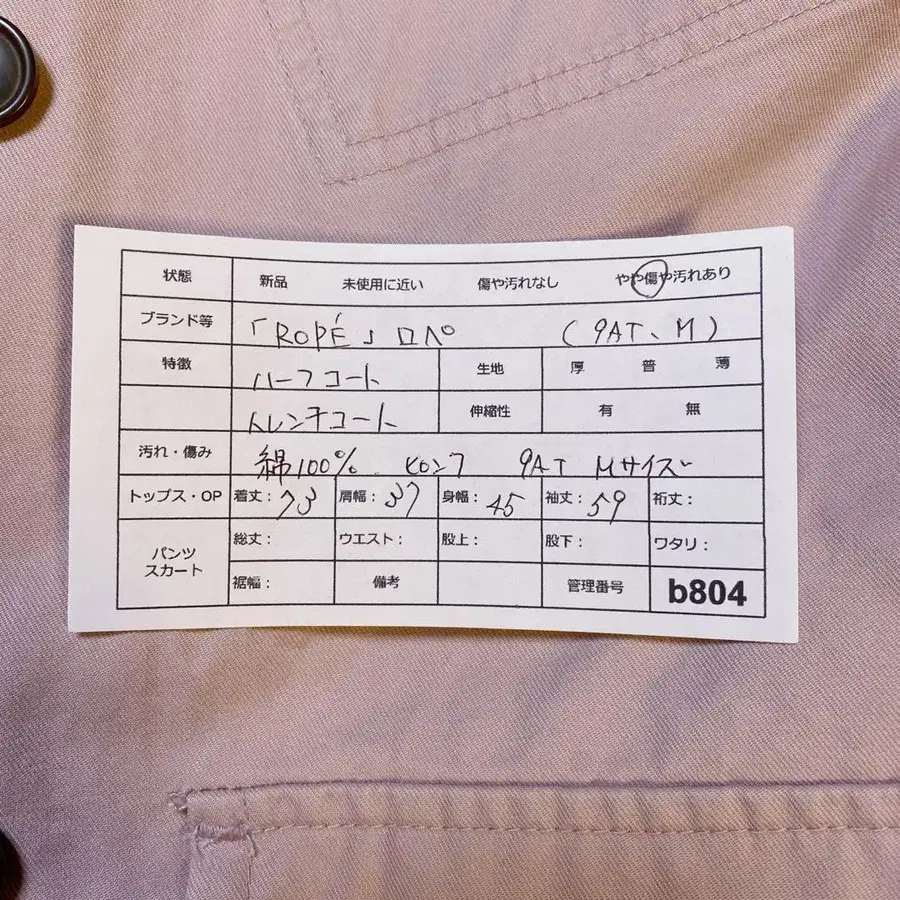 状態 新品 未使用に近い 傷や汚れなし やや傷や汚れあり
ブランド等 「ROPÉ」ロペ (9AT、M)
特徴 ハーフコート 生地 厚 普 薄
トレンチコート 伸縮性 有 無
汚れ・傷み 綿100% ピンク 9AT Mサイズ
トップス・OP 着丈：73 肩幅：37 身幅：45 袖丈：59 裄丈：
パンツ スカート 総丈： ウエスト： 股上： 股下： ワタリ：
裾幅： 備考 管理番号 b804